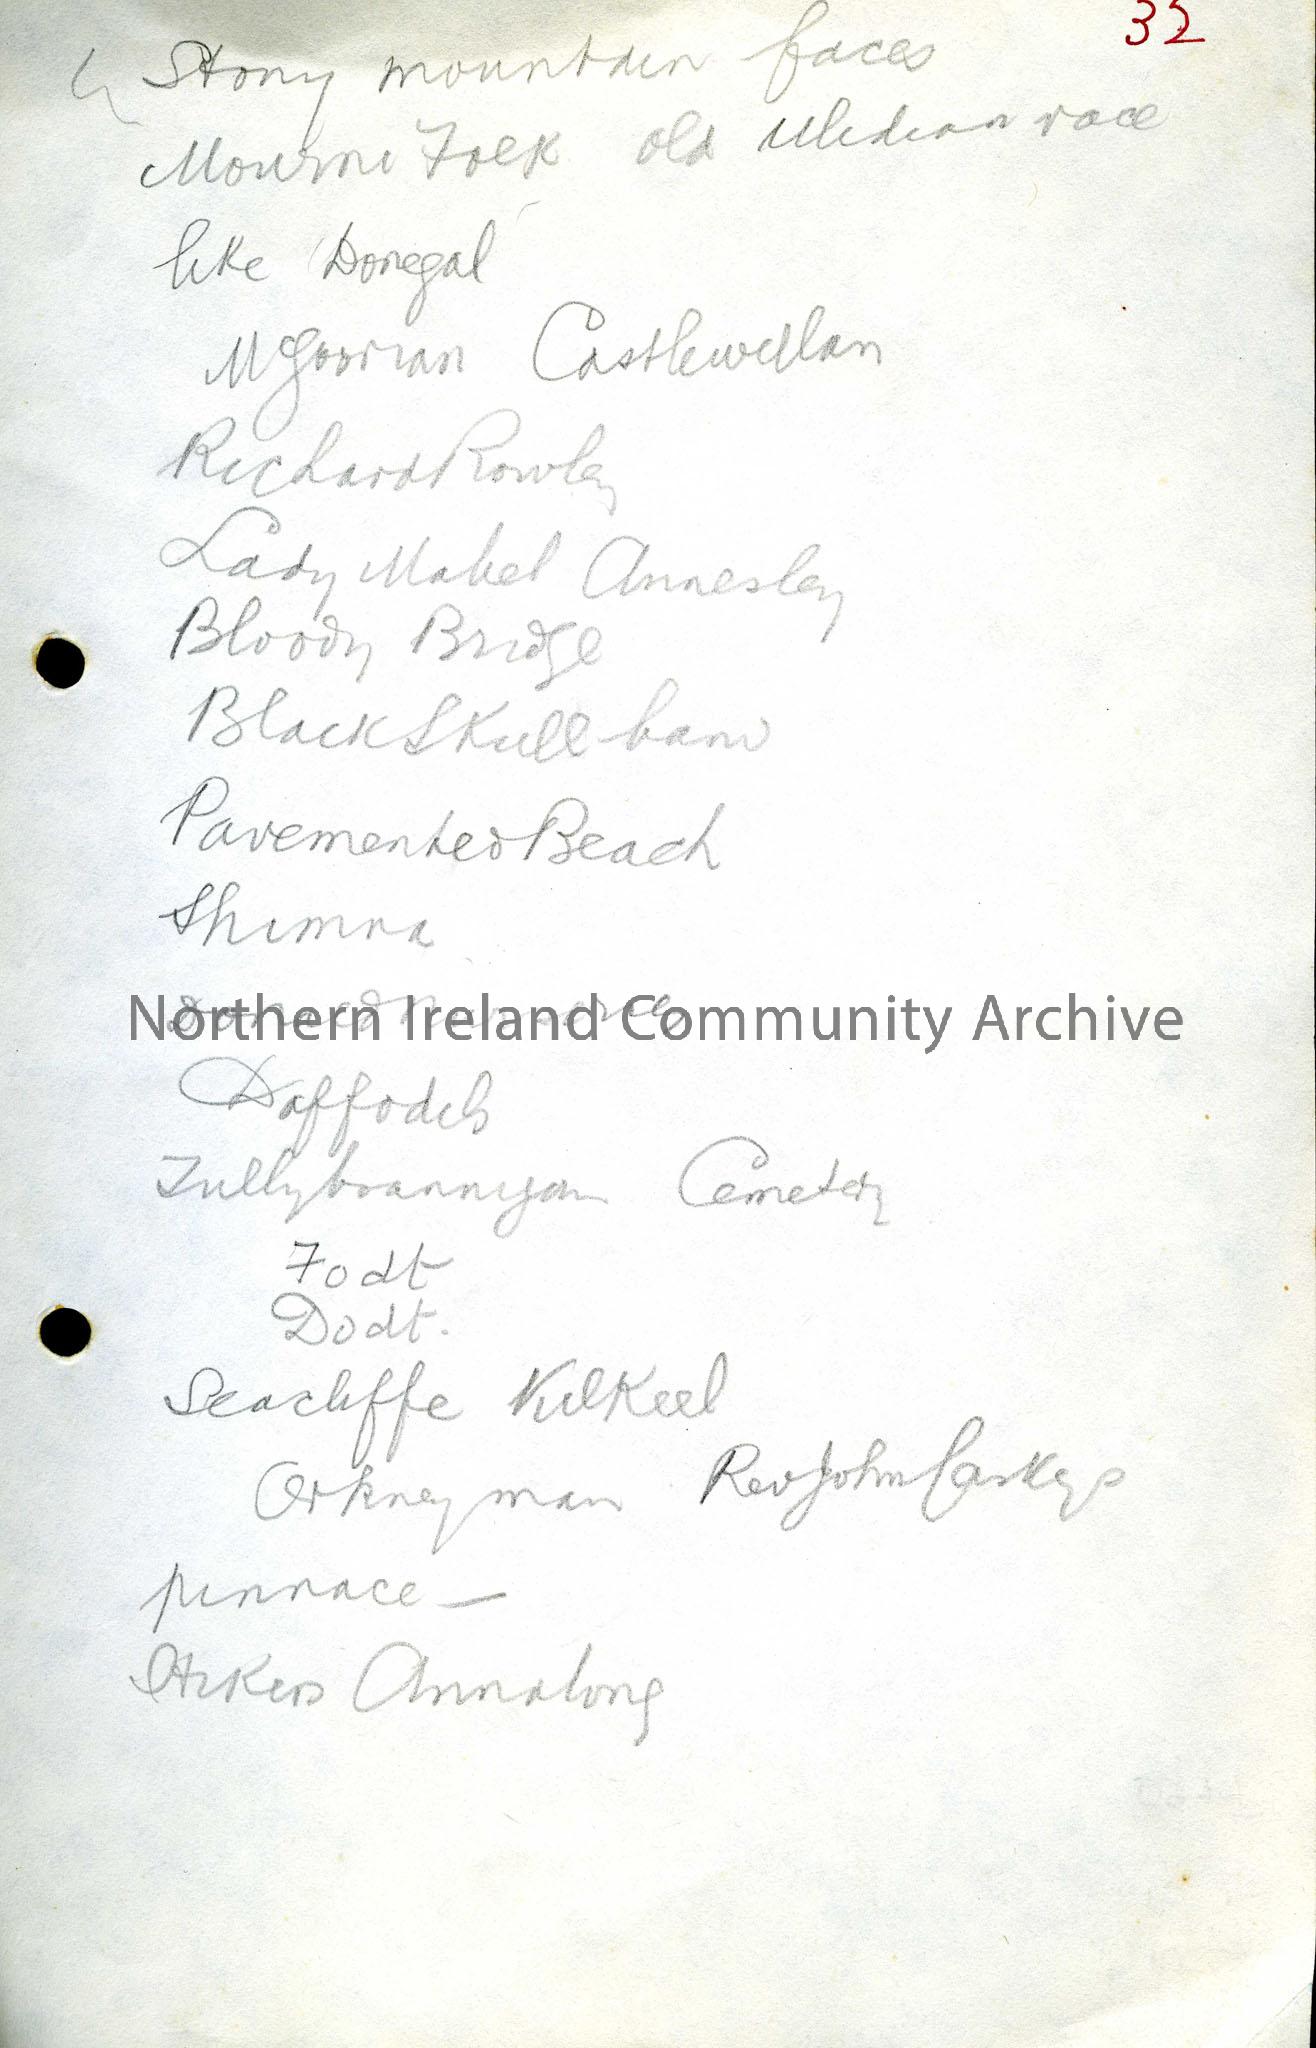 32
Stony mountain faces
Mourne Folk old Ulidian race
like Donegal
McGoorian Castlewellan
Richard Rowley
Lady Mabel Annesley
Bloody Bridge
Black Skull
Pavemented Beach
Shimna
Northern Ireland Community Archive
Daffodils
Tullybrannigan Cemetery
Fodt
Dodt.
Seacliffe Kilkeel
Orkneyman Rev John Caskeys
pinnace —
Annalong